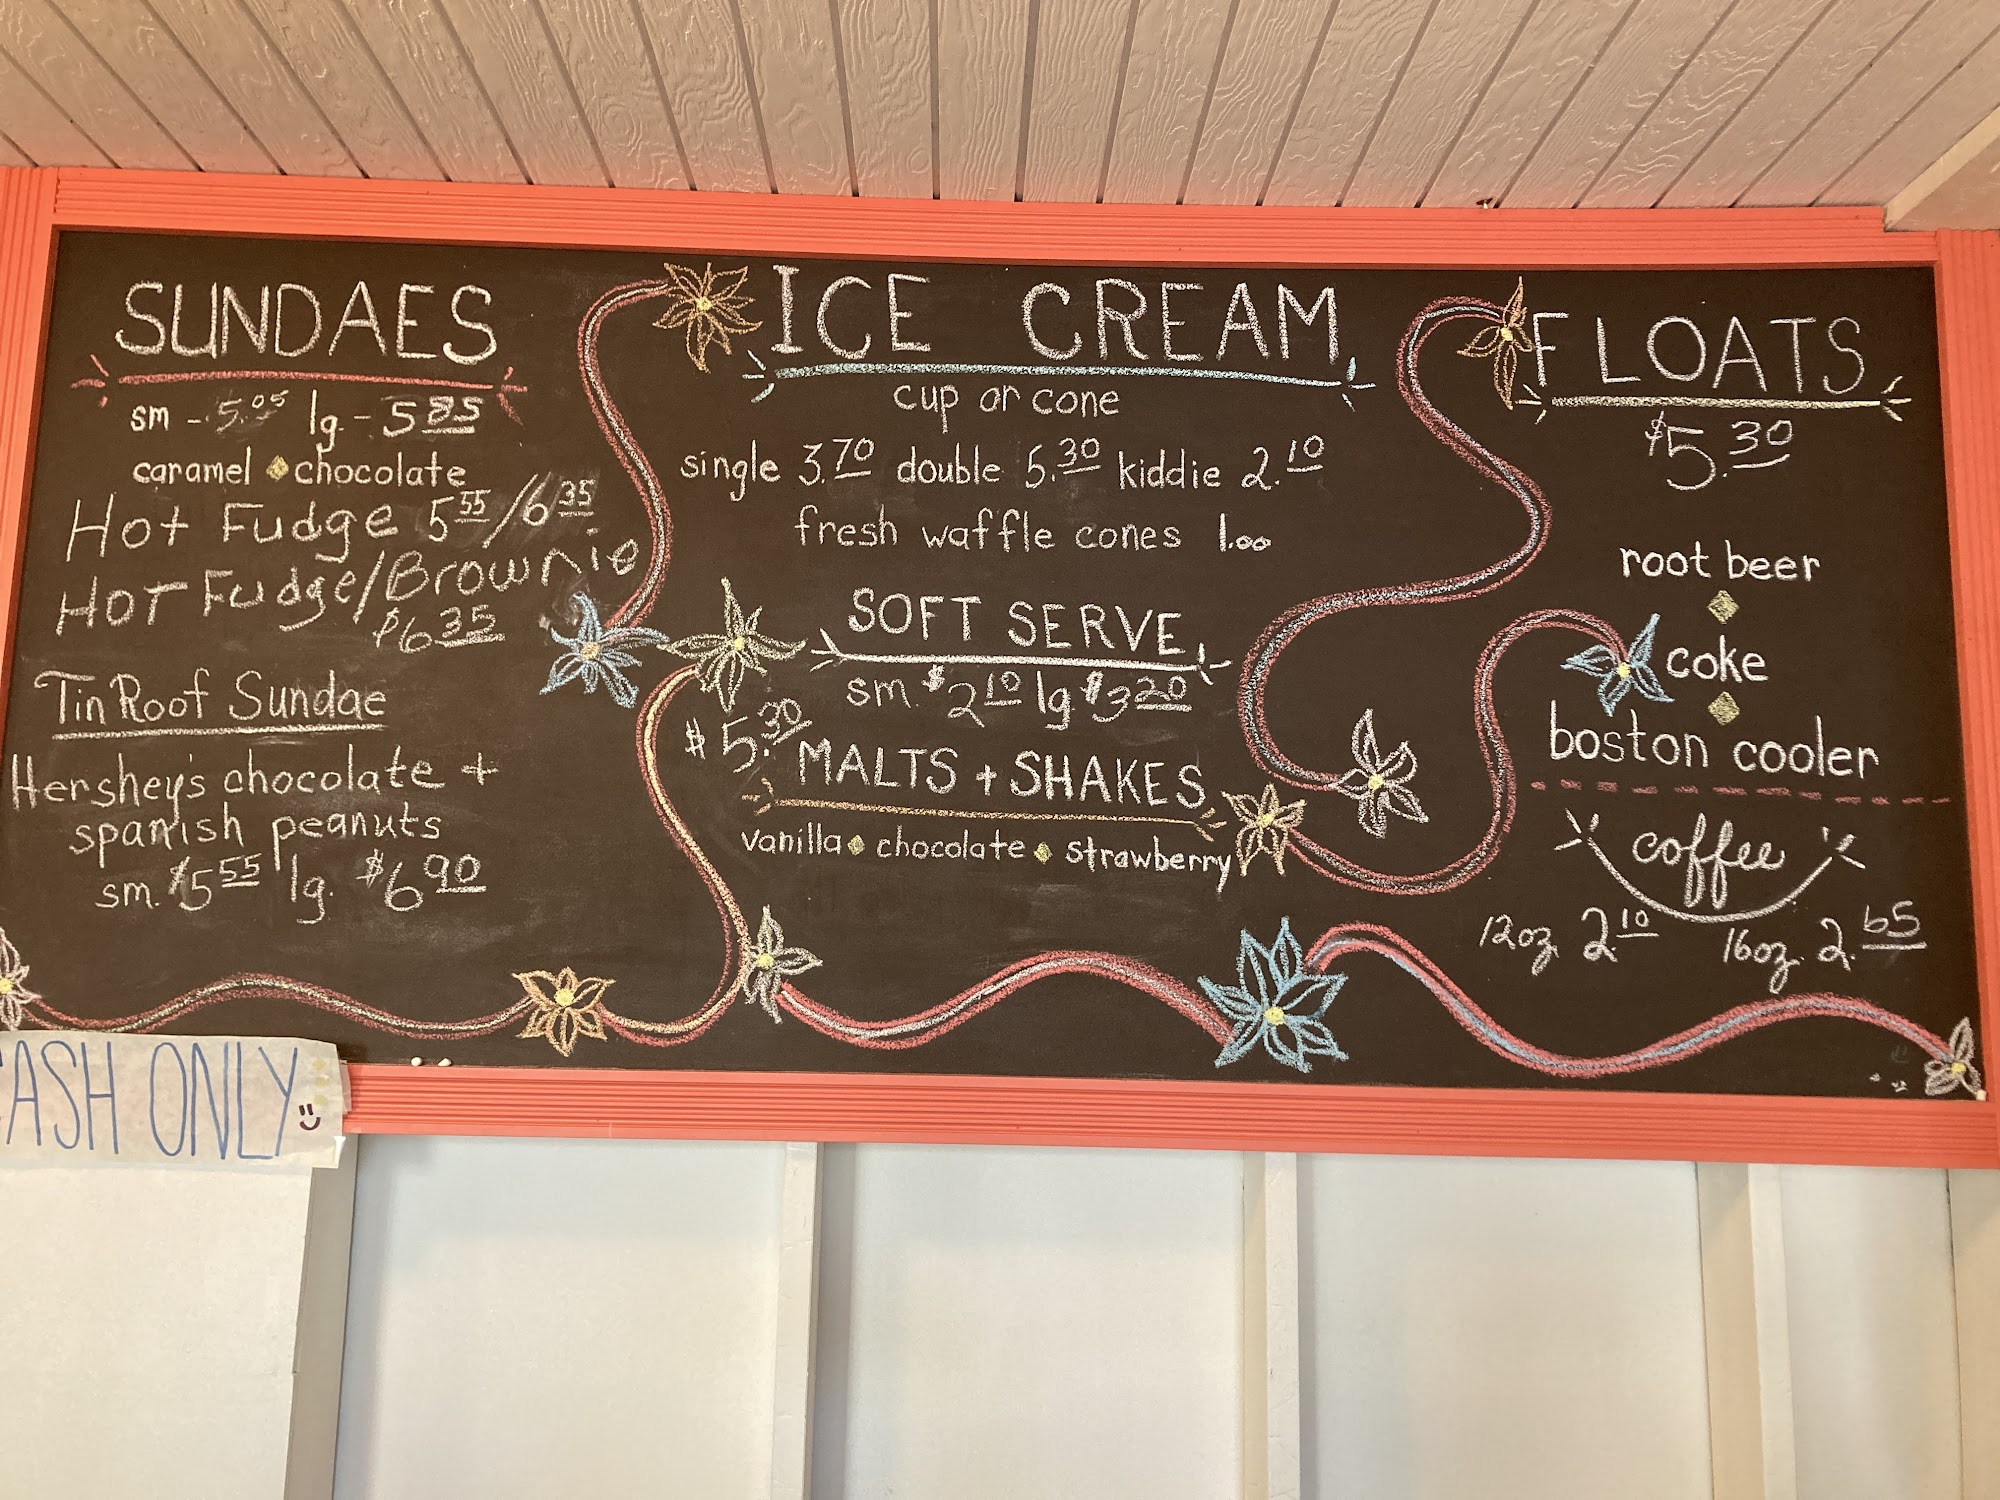 SUNDAES
sm - 5.05 lg. - 5 85
caramel ◆ chocolate
Hot Fudge 5 55 / 6 35
HOT Fudge/Brownie
$6 35
Tin Roof Sundae
Hershey's chocolate +
spanish peanuts
sm. $5 55 lg. $6 90
CASH ONLY
ICE CREAM
cup or cone
single 3.70 double 5.30 kiddie 2.10
fresh waffle cones 1.00
SOFT SERVE
sm. $2 10 lg $3 20
$5.30
MALTS + SHAKES
vanilla ◆ chocolate ◆ strawberry
FLOATS
$5.30
root beer
◆
coke
◆
boston cooler
coffee
12oz. 2.10 16oz. 2.65